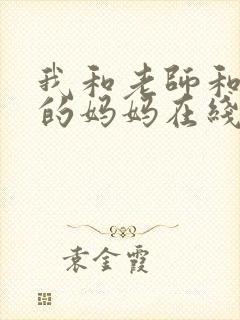 我和老師和
的妈妈在綫
袁金霞